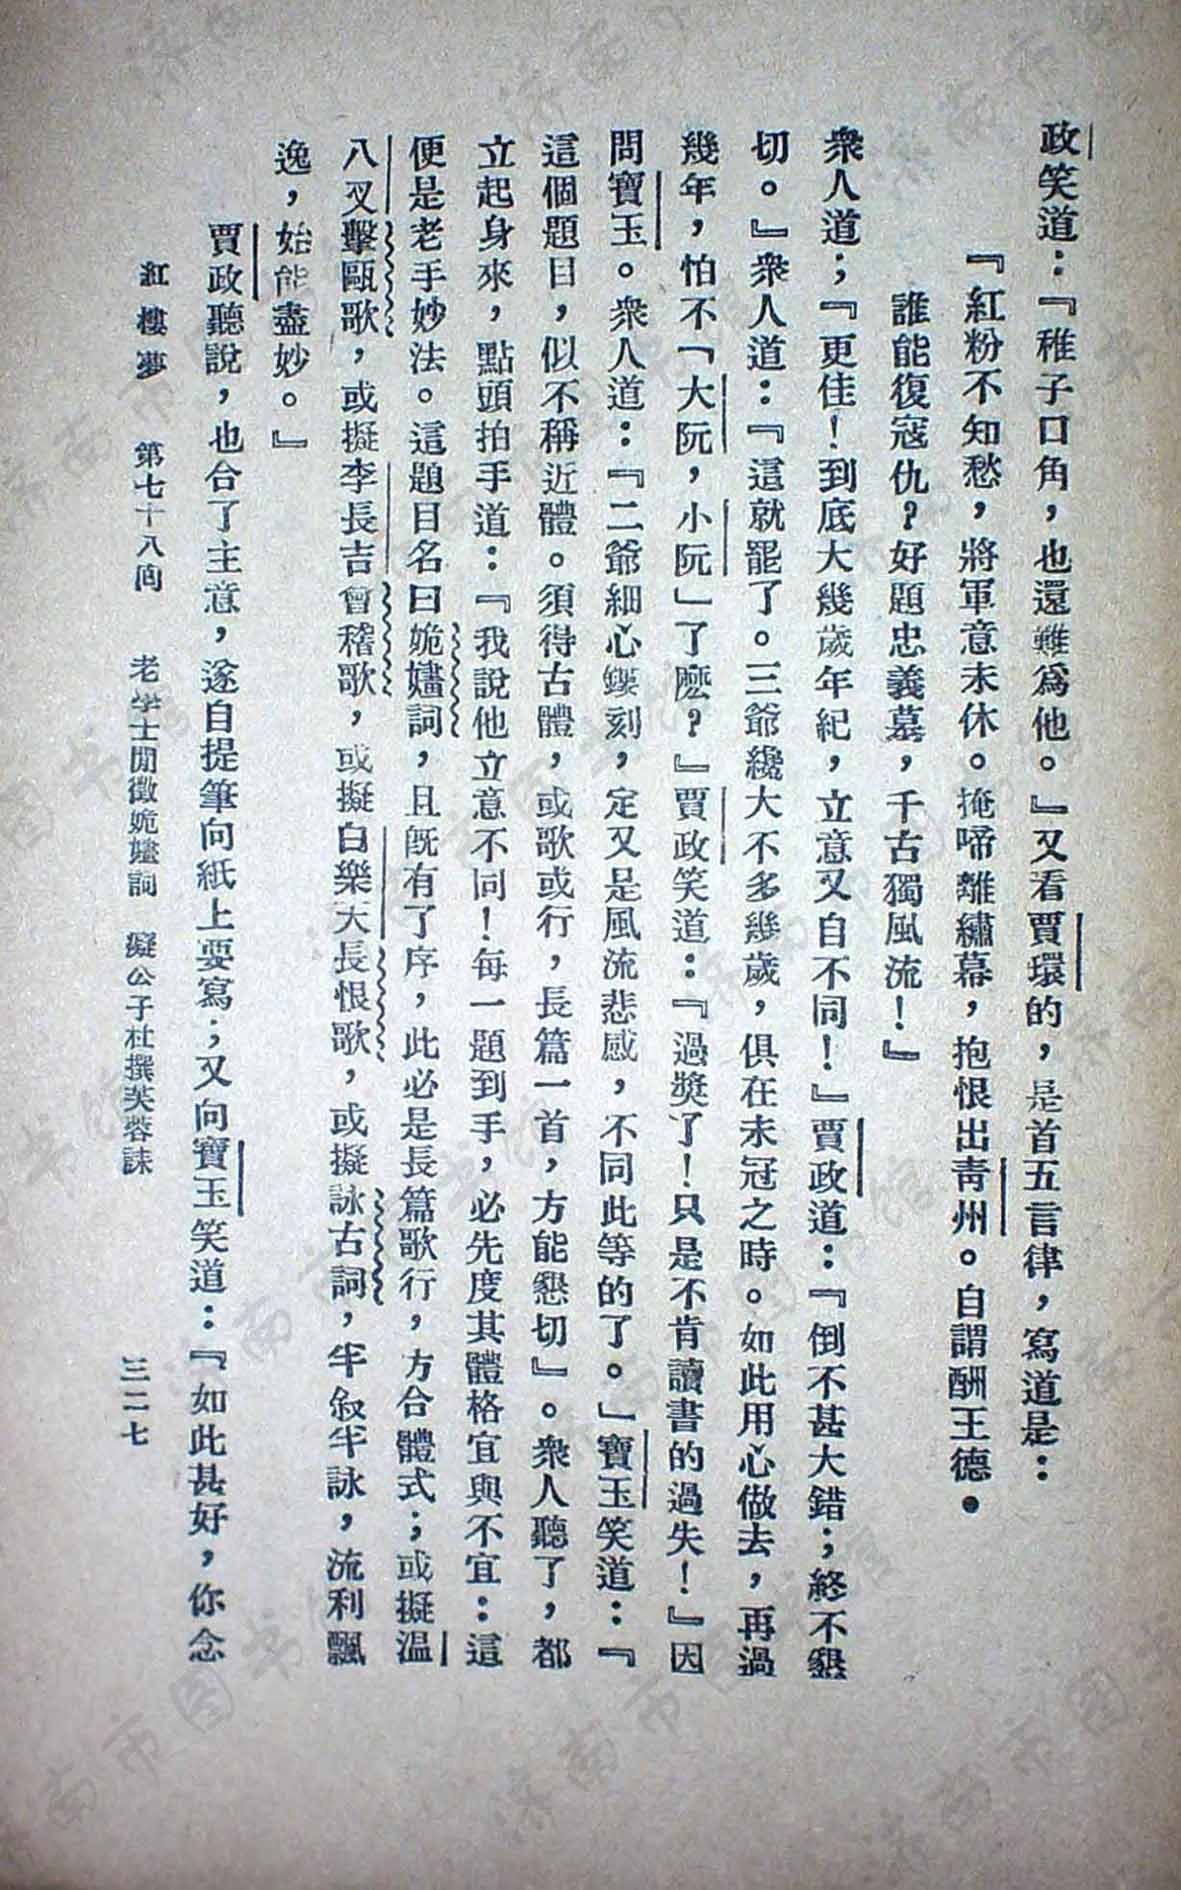 政笑道：『稚子口角，也還難爲他。』又看賈環的，是首五言律，寫道是：
『紅粉不知愁，將軍意未休。掩啼離繡幕，抱恨出青州。自謂酬王德。
誰能復寇仇？好題忠義墓，千古獨風流！』
衆人道；『更佳！到底大幾歲年紀，立意又自不同！』賈政道：『倒不甚大錯；終不懇
切。』衆人道：『這就罷了。三爺纔大不多幾歲，俱在未冠之時。如此用心做去，再過
幾年，怕不「大阮，小阮」了麽？』賈政笑道：『過奬了！只是不肯讀書的過失！』因
問寶玉。衆人道：『二爺細心鏤刻，定又是風流悲感，不同此等的了。」寶玉笑道：『
這個題目，似不稱近體。須得古體，或歌或行，長篇一首，方能懇切』。衆人聽了，都
立起身來，點頭拍手道：『我說他立意不同！每一題到手，必先度其體格宜與不宜：這
便是老手妙法。這題目名曰姽嫿詞，且既有了序，此必是長篇歌行，方合體式；或擬温
八叉擊甌歌，或擬李長吉會稽歌，或擬白樂天長恨歌，或擬詠古詞，半叙半詠，流利飄
逸，始能盡妙。』
賈政聽說，也合了主意，遂自提筆向紙上要寫；又向寶玉笑道：『如此甚好，你念
紅樓夢　第七十八回　老學士閒徵姽嫿詞　癡公子杜撰芙蓉誄　三二七
济南市图书馆